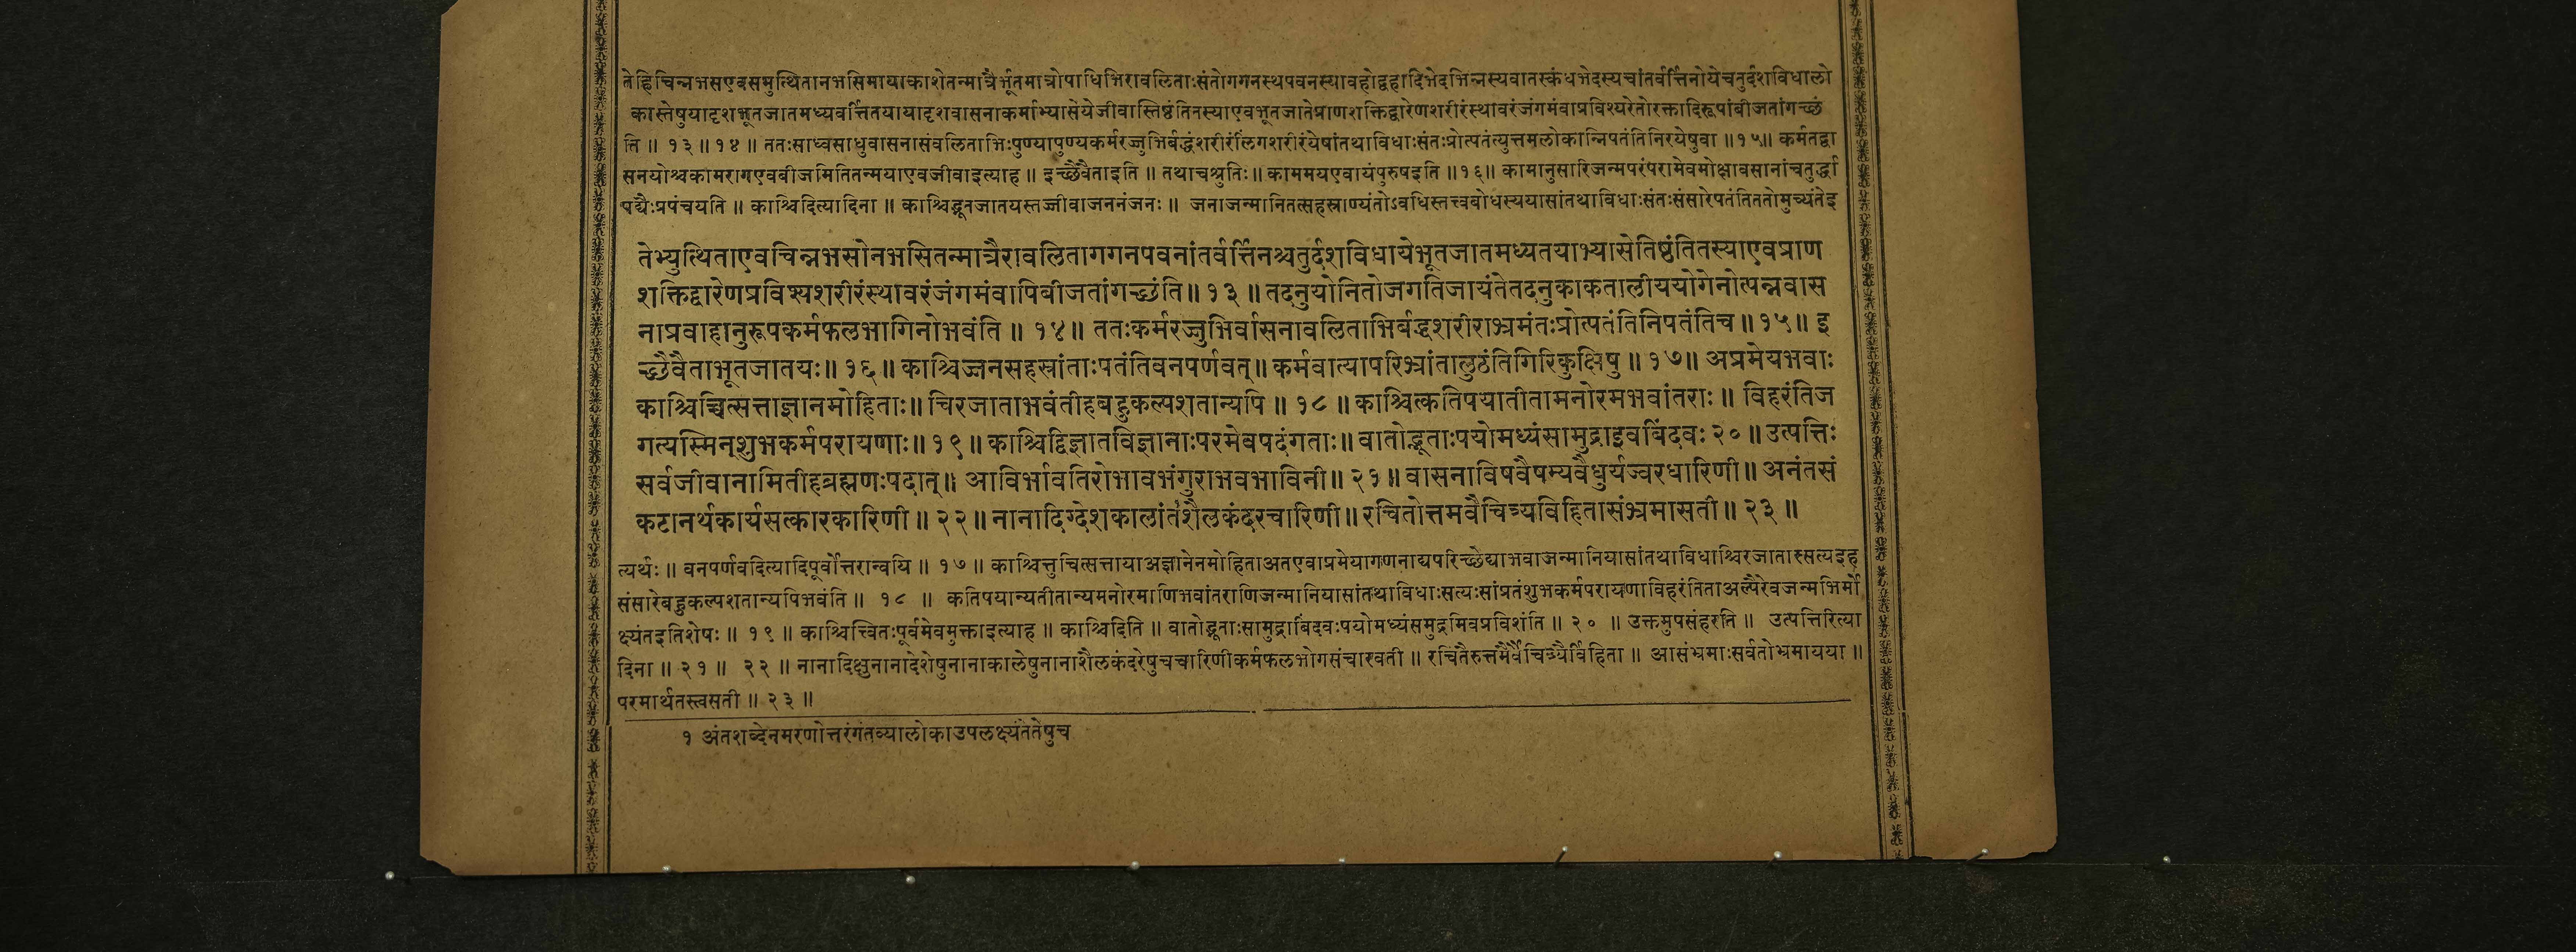 तेहिचिन्नभसएवसमुत्थितानभसिमायाकाशेतन्मात्रैर्भूतमात्रोपाधिभिरावलिताःसंतोगगनस्थपवनस्यावहोद्वहादिभेदभिन्नस्यवातस्कंधभेदस्यचांतर्वर्त्तिनोयेचतुर्दशविधालो
कास्तेषुयादृशभूतजातमध्यवर्त्तितयायादृशवासनाकर्माभ्यासेयेजीवास्तिष्ठंतितस्याएवभूतजातेप्राणशक्तिद्वारेणशरीरंस्थावरंजंगमंवाप्रविश्यरेतोरक्तादिरूपांबीजतांगच्छं
ति ॥ १३ ॥ १४ ॥ ततःसाध्वसाधुवासनासंवलिताभिःपुण्यापुण्यकर्मरज्जुभिर्बद्धंशरीरंलिंगशरीरंयेषांतथाविधाःसंतःप्रोत्पतंत्युत्तमलोकान्निपतंतिनिरयेषुवा ॥ १५ ॥ कर्मतद्वा
सनयोश्चकामरागएवबीजमितितन्मयाएवजीवाइत्याह ॥ इच्छैवैताइति ॥ तथाचश्रुतिः ॥ काममयएवायंपुरुषइति ॥ १६ ॥ कामानुसारिजन्मपरंपरामेवमोक्षावसानांचतुर्द्धा
पद्यैःप्रपंचयति ॥ काश्चिदित्यादिना ॥ काश्चिद्भूतजातयस्तज्जीवाजननंजनः ॥ जनाजन्मानितत्सहस्राण्यंतोऽवधिस्तत्त्वबोधस्ययासांतथाविधाःसंतःसंसारेपतंतिततोमुच्यंतेइ
तेभ्युत्थिताएवचिन्नभसोनभसितन्मात्रैरावलितागगनपवनांतर्वर्त्तिनश्चतुर्दशविधायेभूतजातमध्यतयाभ्यासेतिष्ठंतितस्याएवप्राण
शक्तिद्वारेणप्रविश्यशरीरंस्थावरंजंगमंवापिबीजतांगच्छंति ॥ १३ ॥ तदनुयोनितोजगतिजायंतेतदनुकाकतालीययोगेनोत्पन्नवास
नाप्रवाहानुरूपकर्मफलभागिनोभवंति ॥ १४ ॥ ततःकर्मरज्जुभिर्वासनावलिताभिर्बद्धशरीराभ्रमंतःप्रोत्पतंतिनिपतंतिच ॥ १५ ॥ इ
च्छैवैताभूतजातयः ॥ १६ ॥ काश्चिज्जनसहस्रांताःपतंतिवनपर्णवत् ॥ कर्मवात्यापरिभ्रांतालुठंतिगिरिकुक्षिषु ॥ १७ ॥ अप्रमेयभवाः
काश्चिच्चित्सत्ताज्ञानमोहिताः ॥ चिरजाताभवंतीहबहुकल्पशतान्यपि ॥ १८ ॥ काश्चित्कतिपयातीतामनोरमभवांतराः ॥ विहरंतिज
गत्यस्मिन्शुभकर्मपरायणाः ॥ १९ ॥ काश्चिद्विज्ञातविज्ञानाःपरमेवपदंगताः ॥ वातोद्भूताःपयोमध्यंसामुद्राइवबिंदवः २० ॥ उत्पत्तिः
सर्वजीवानामितीहब्रह्मणःपदात् ॥ आविर्भावतिरोभावभंगुराभवभाविनी ॥ २१ ॥ वासनाविषवैषम्यवैधुर्यज्वरधारिणी ॥ अनंतसं
कटानर्थकार्यसत्कारकारिणी ॥ २२ ॥ नानादिग्देशकालांतशैलकंदरचारिणी ॥ रचितोत्तमवैचित्र्यविहितासंभ्रमासती ॥ २३ ॥
त्यर्थः ॥ वनपर्णवदित्यादिपूर्वोत्तरान्वयि ॥ १७ ॥ काश्चित्तुचित्सत्तायाअज्ञानेनमोहिताअतएवाप्रमेयागणनाद्यपरिच्छेद्याभवाजन्मानियासांतथाविधाश्चिरजाताःसत्यइह
संसारेबहुकल्पशतान्यपिभवंति ॥ १८ ॥ कतिपयान्यतीतान्यमनोरमाणिभवांतराणिजन्मानियासांतथाविधाःसत्यःसांप्रतंशुभकर्मपरायणाविहरंतिताअल्पैरेवजन्मभिर्मो
क्ष्यंतइतिशेषः ॥ १९ ॥ काश्चित्त्वितःपूर्वमेवमुक्ताइत्याह ॥ काश्चिदिति ॥ वातोद्भूताःसामुद्राबिंदवःपयोमध्यंसमुद्रमिवप्रविशंति ॥ २० ॥ उक्तमुपसंहरति ॥ उत्पत्तिरित्या
दिना ॥ २१ ॥ २२ ॥ नानादिक्षुनानादेशेषुनानाकालेषुनानाशैलकंदरेषुचचारिणीकर्मफलभोगसंचारवती ॥ रचितैरुत्तमैर्वैचित्र्यैर्विहिता ॥ आसंभ्रमाःसर्वतोभ्रमायया ॥
परमार्थतस्त्वसती ॥ २३ ॥
१ अंतशब्देनमरणोत्तरंगंतव्यालोकाउपलक्ष्यंतेतेषुच